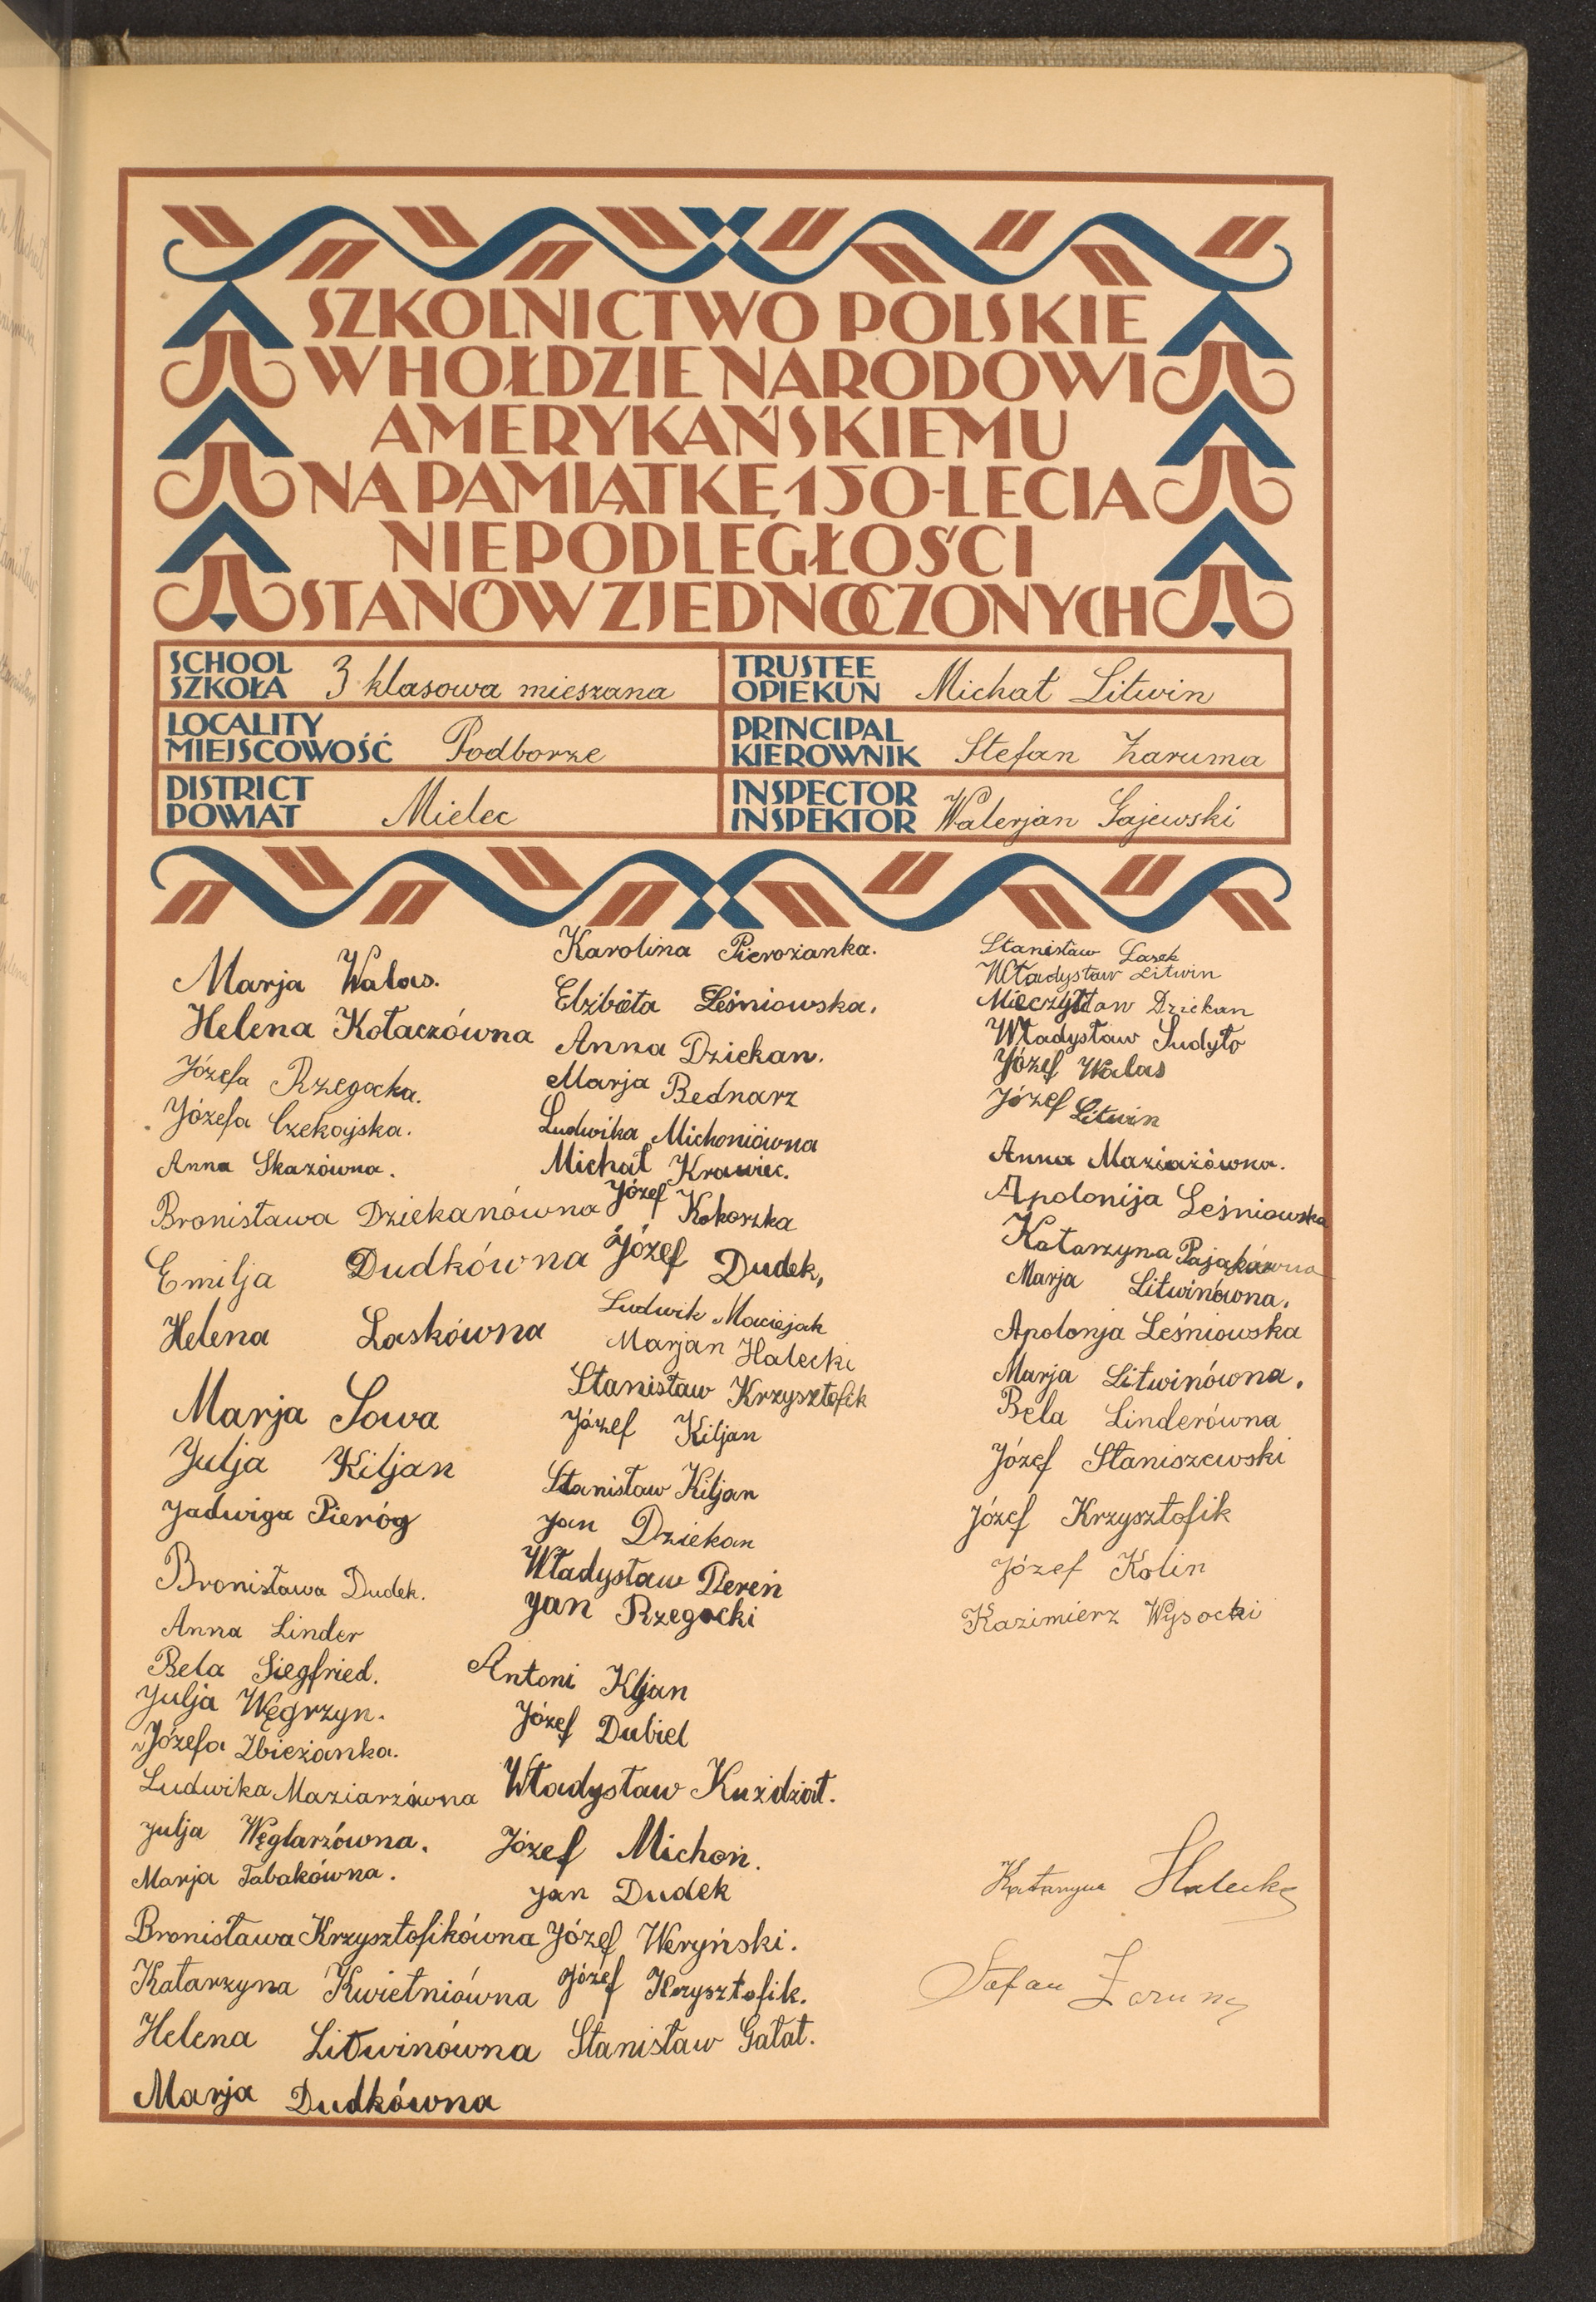 SZKOLNICTWO POLSKIE
W HOŁDZIE NARODOWI
AMERYKAŃSKIEMU
NA PAMIĄTKĘ 150-LECIA
NIEPODLEGŁOŚCI
STANÓW ZJEDNOCZONYCH
SCHOOL
SZKOŁA 3 klasowa mieszana
TRUSTEE
OPIEKUN Michał Litwin
LOCALITY
MIEJSCOWOŚĆ Podborze
PRINCIPAL
KIEROWNIK Stefan Zaruma
DISTRICT
POWIAT Mielec
INSPECTOR
INSPEKTOR Walerjan Gajewski
Marja Walas.
Helena Kołaczówna
Józefa Rzegocka.
Józefa Czekajska.
Anna Skazówna.
Bronisława Dziekanówna
Emilja Dudkówna
Helena Laskówna
Marja Sowa
Julja Kiljan
Jadwiga Pieróg
Bronisława Dudek.
Anna Linder
Bela Siegfried.
Julja Węgrzyn.
Józefa Zbieżanka.
Ludwika Maziarzówna
Julja Węglarzówna.
Marja Tabakówna.
Bronisława Krzysztofikówna
Katarzyna Kwietniówna
Helena Litwinówna
Marja Dudkówna
Karolina Pierożanka.
Elżbieta Leśniowska.
Anna Dziekan.
Marja Bednarz
Ludwika Michoniówna
Michał Krawiec.
Józef Kokoszka
Józef Dudek,
Ludwik Maciejak
Marjan Halecki
Stanisław Krzysztofik
Józef Kiljan
Stanisław Kiljan
Jan Dziekan
Władysław Dereń
Jan Rzegocki
Antoni Kljan
Józef Dubiel
Władysław Kuździał.
Józef Michoń.
Jan Dudek
Józef Weryński.
Józef Krzysztofik.
Stanisław Gałat.
Stanisław Lasek
Władysław Litwin
Mieczysław Dziekan
Władysław Sudyło
Józef Walas
Józef Litwin
Anna Maziażówna.
Apolonija Leśniowska
Katarzyna Pająkówna
Marja Litwinówna.
Apolonja Leśniowska
Marja Litwinówna.
Bela Linderówna
Józef Staniszewski
Józef Krzysztofik
Józef Kolin
Kazimierz Wysocki
Katarzyna Halecka
Stefan Zaruma